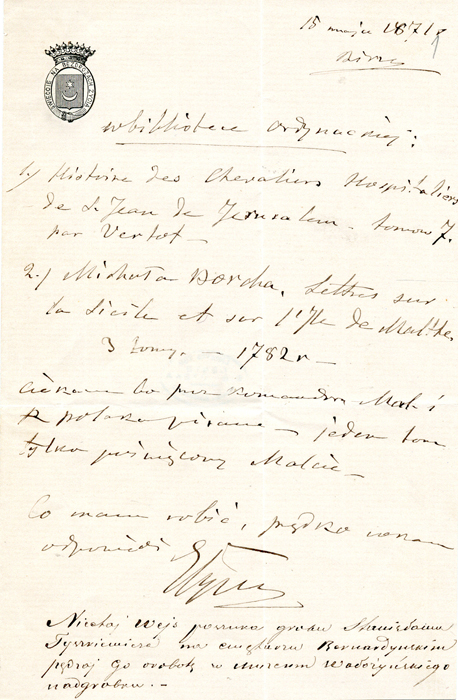 15 maja 1871 r
Birże
w bibliotece ordynackiej:
1.) Histoire des Chevaliers Hospitaliers
de S. Jean de Jerusalem - tomow 7.
par Vertot -
2.) Michała Borcha. Lettres sur
la Sicile et sur l'Ile de Malthe.
3 tomy. - 1782 r -
ciekawe bo przez komandra Mal. i
polaka pisane - jeden tom
tylko poświęcony Malcie -
Co mam robić, prędko
odpowiedzi
Niechaj Wejs poszuka grobu Stanisława
Tyszkiewicza na cmętarzu Bernardyńskim
go
nadgrobku. -